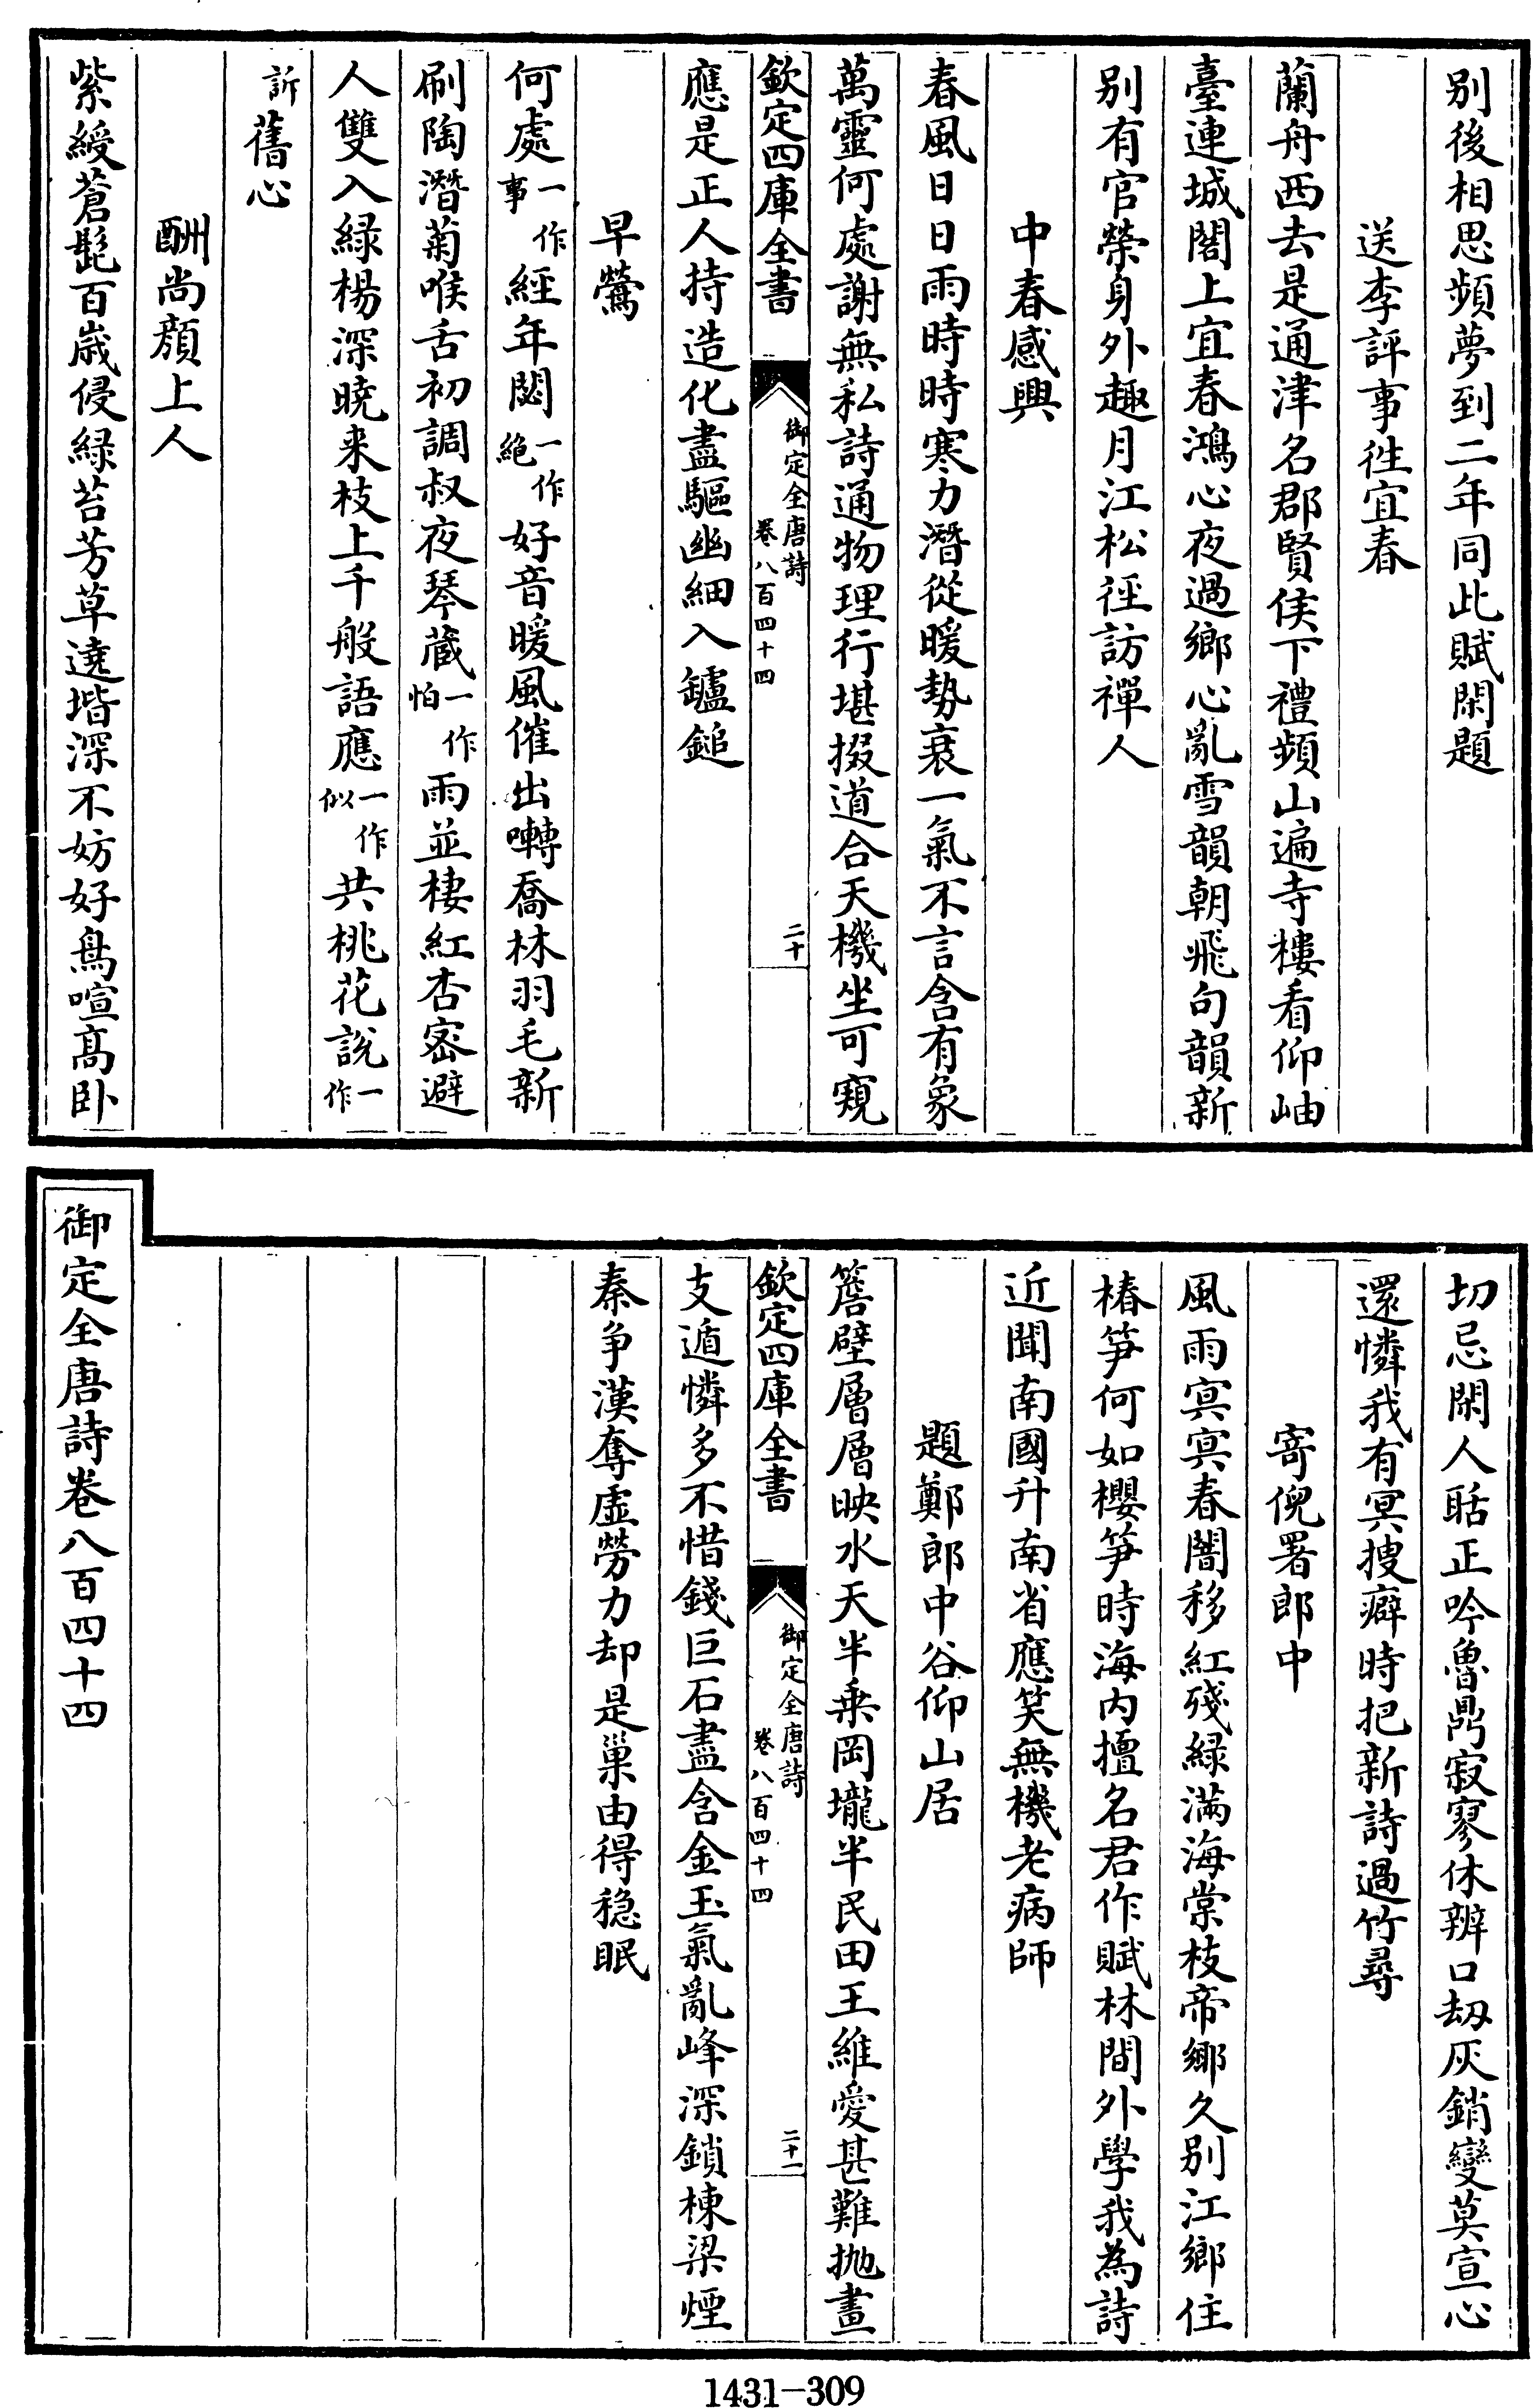 别後相思頻夢到二年同此賦閑題
送李評事徃宜春
蘭舟西去是通津名郡賢侯下禮頻山遍寺樓看仰岫
臺連城閣上宜春鴻心夜過鄉心亂雪韻朝飛句韻新
别有官榮身外趣月江松徑訪禪人
中春感興
春風日日雨時時寒力潛從暖勢衰一氣不言含有象
萬靈何處謝無私詩通物理行堪掇道合天機坐可窺
欽定四庫全書
御定全唐詩
卷八百四十四
二十
應是正人持造化盡驅幽細入鑪鎚
早鶯
何處一作事經年閟一作絶好音暖風催出囀喬林羽毛新
刷陶潛菊喉舌初調叔夜琴蔵一作怕雨並棲紅杏宻避
人雙入緑楊深曉来枝上千般語應一作似共桃花説一作
訴舊心
酬尚顔上人
紫綬蒼髭百歳侵緑苔芳草遶堦深不妨好鳥喧髙卧
切忌閑人聒正吟魯鼎寂寥休辨口劫灰銷變莫宣心
還憐我有冥搜癖時把新詩過竹尋
寄倪署郎中
風雨冥冥春闇移紅殘緑滿海棠枝帝鄉久别江鄉住
椿笋何如櫻笋時海内擅名君作賦林間外學我為詩
近聞南國升南省應笑無機老病師
題鄭郎中谷仰山居
簷壁層層映水天半乗岡壠半民田王維愛甚難抛畫
欽定四庫全書
御定全唐詩
卷八百四十四
二十一
支遁憐多不惜錢巨石盡含金玉氣亂峰深鎖棟梁煙
秦争漢奪虚勞力却是巢由得穏眠
御定全唐詩卷八百四十四
1431-309